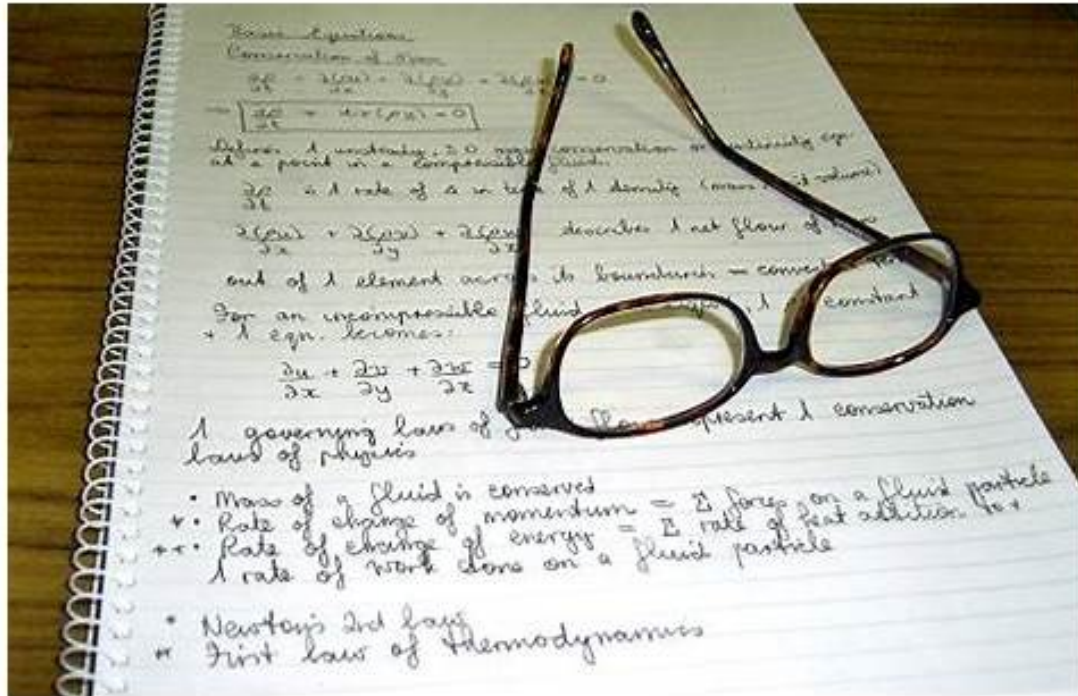 Basic Equations
Conservation of Mass
∂ρ/∂t + ∂(ρu)/∂x + ∂(ρv)/∂y + ∂(ρw)/∂z = 0
⇒ ∂ρ/∂t + div(ρu) = 0
Defines 1 unsteady, 3D mass conservation or continuity eqn.
at a point in a compressible fluid.
∂ρ/∂t is 1 rate of Δ in of 1 density (mass unit volume)
∂(ρu)/∂x + ∂(ρv)/∂y + ∂(ρw)/∂z describes 1 net flow of
out of 1 element across its boundaries —
For an incompressible fluid 1 constant
+ 1 eqn. becomes:
∂u/∂x + ∂v/∂y + ∂w/∂z = 0
1 governing laws of represent 1 conservation
laws of physics
• Mass of a fluid is conserved
*• Rate of change of momentum = Σ forces on a fluid particle
**• Rate of change of energy = Σ rate of heat addition to +
1 rate of work done on a fluid particle
* Newton's 2nd law
** First law of thermodynamics